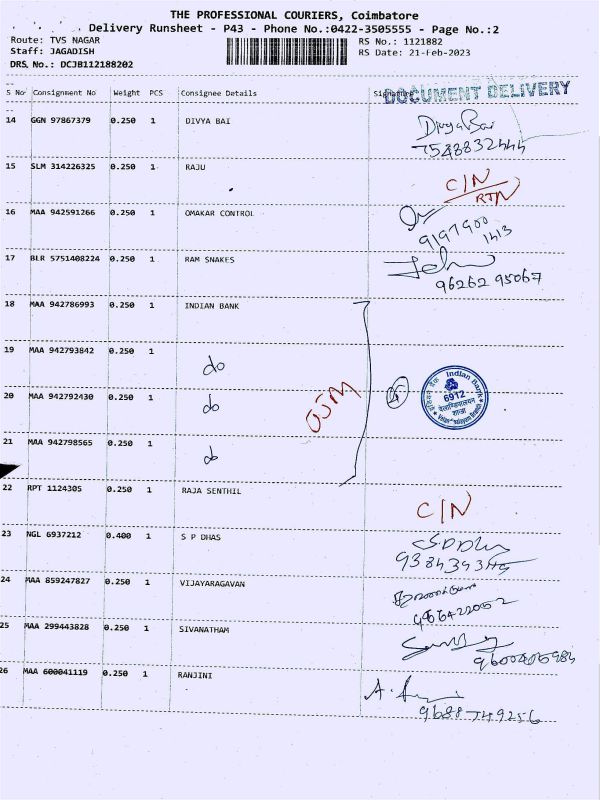 THE PROFESSIONAL COURIERS, Coimbatore
Delivery Runsheet - P43 - Phone No.:0422-3505555 - Page No.:2
Route: TVS NAGAR RS No.: 1121882
Staff: JAGADISH RS Date: 21-Feb-2023
DRS No.: DCJB112188202
S No Consignment No Weight PCS Consignee Details Signature DOCUMENT DELIVERY
14 GGN 97867379 0.250 1 DIVYA BAI Divya Bai
7548832444
15 SLM 314226325 0.250 1 RAJU C/N
RTN
16 MAA 942591266 0.250 1 OMAKAR CONTROL
9197900
1413
17 BLR 5751408224 0.250 1 RAM SNAKES John
96262 95067
18 MAA 942786993 0.250 1 INDIAN BANK
19 MAA 942793842 0.250 1 do
20 MAA 942792430 0.250 1 do
21 MAA 942798565 0.250 1 do
OSM
Indian Bank
6912
22 RPT 1124305 0.250 1 RAJA SENTHIL C/N
23 NGL 6937212 0.400 1 S P DHAS
24 MAA 859247827 0.250 1 VIJAYARAGAVAN
25 MAA 299443828 0.250 1 SIVANATHAM
26 MAA 600041119 0.250 1 RANJINI
9688749256